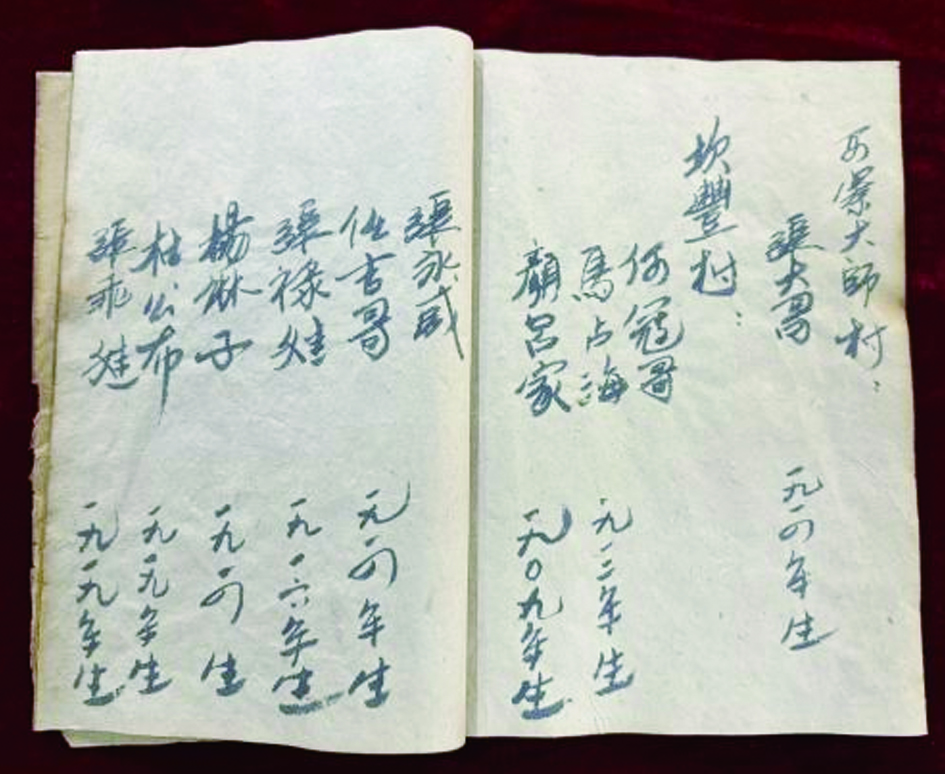 大師村：
張大哥 一九一四年生
坎豐村：
何冠哥
馬占海 一九一二年生
顏呂家 一九〇九年生
張永成
任吉哥 一九一四年生
張祿娃 一九一六年生
楊林子 一九一四生
枯公布 一九一九年生
張乖娃 一九一九年生